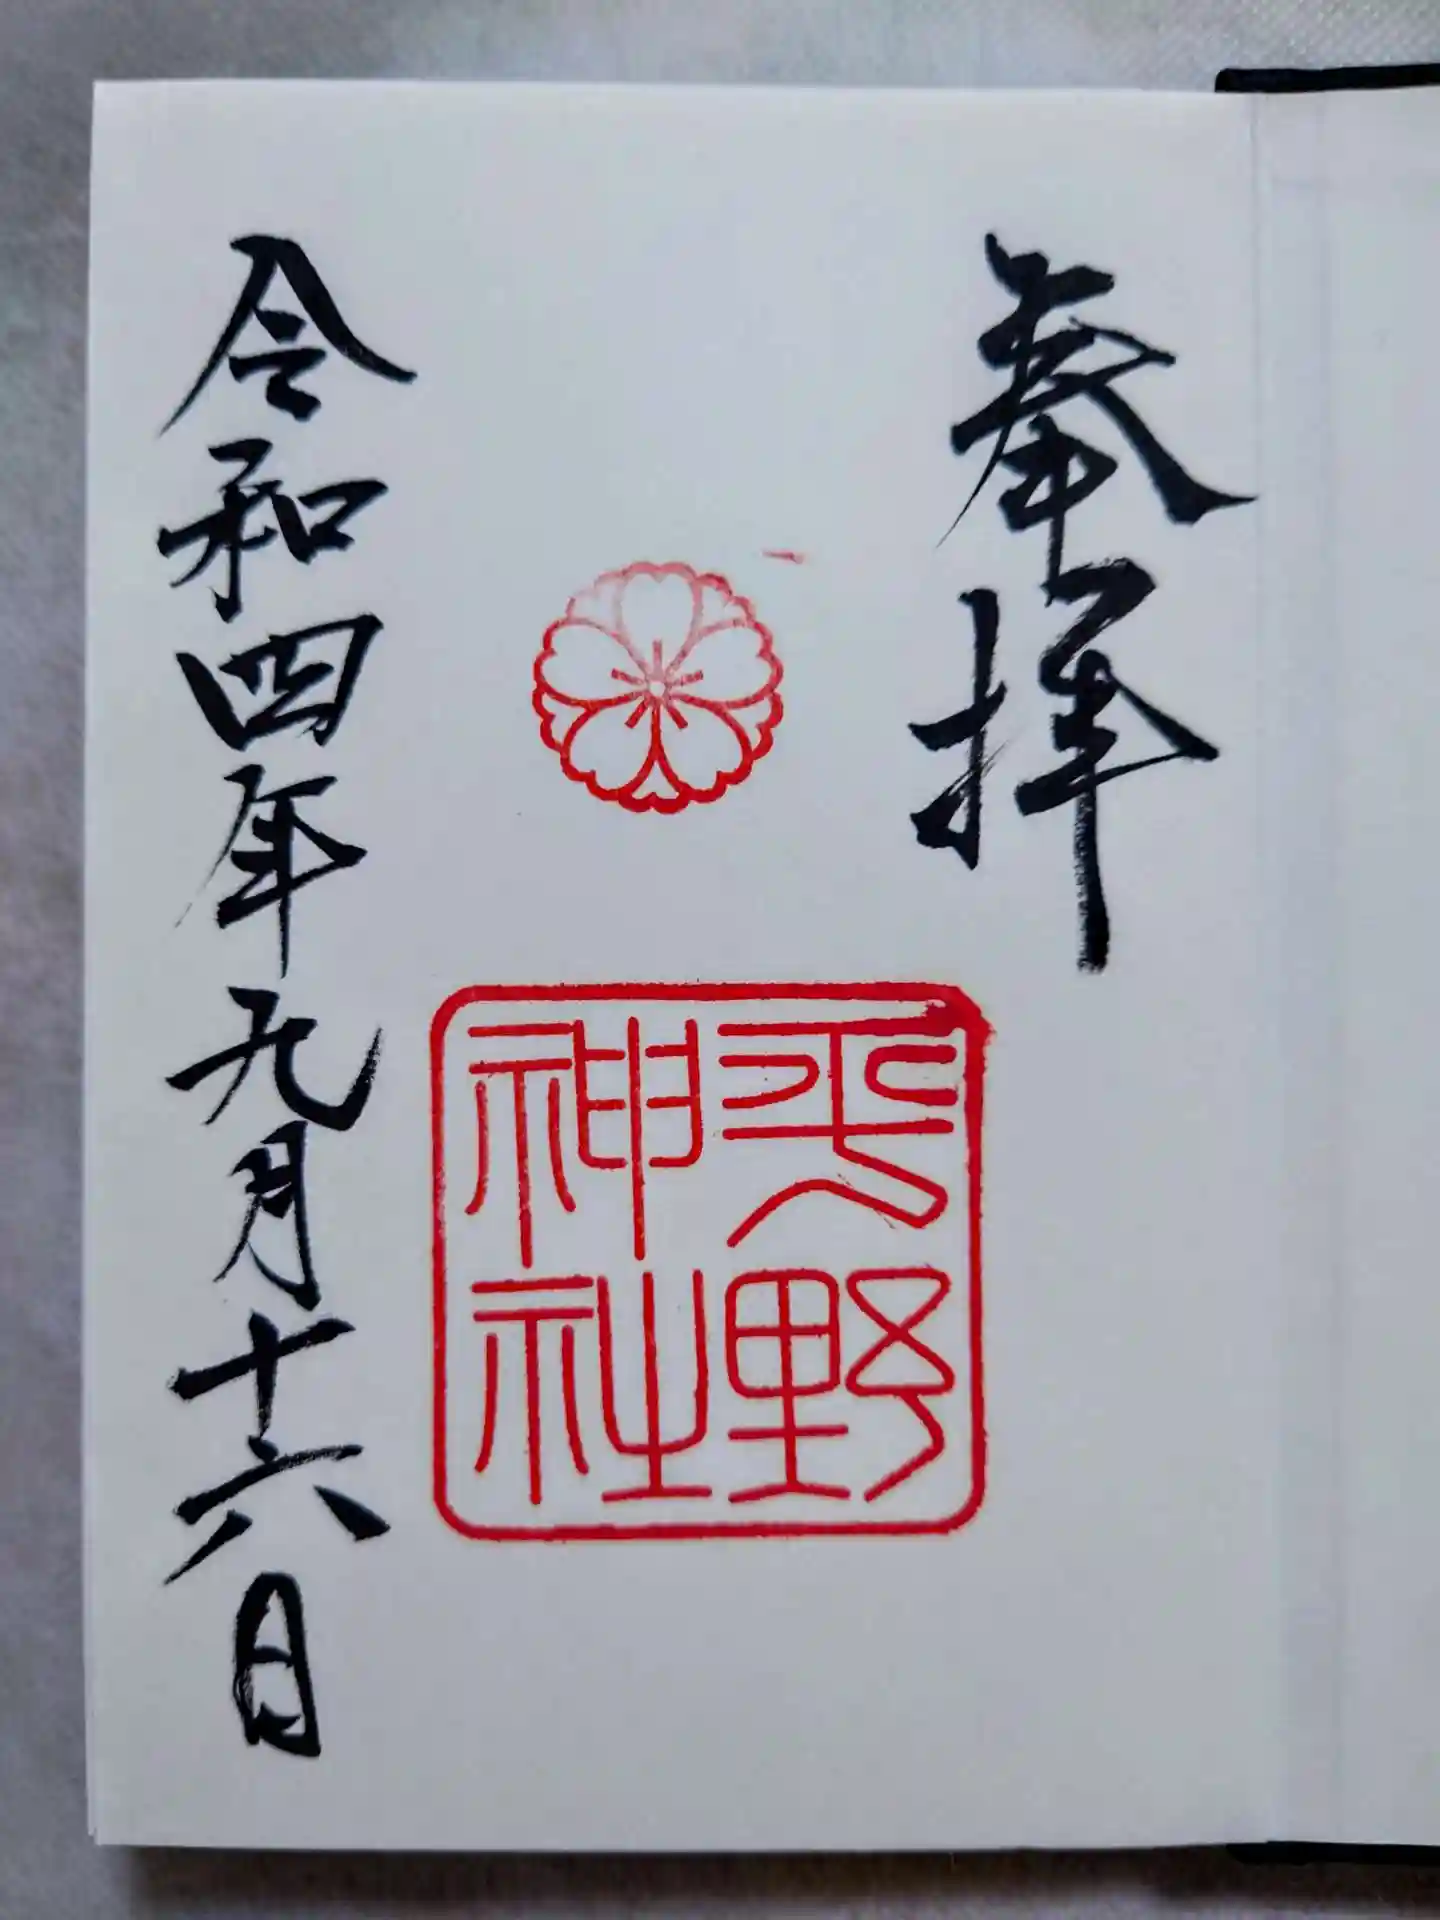 奉拝
平野神社
令和四年九月十六日